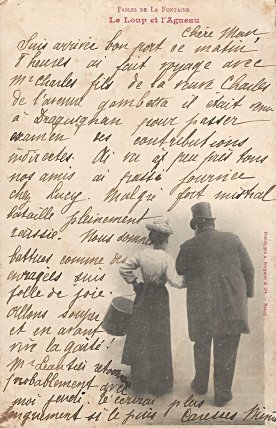 FABLES DE LA FONTAINE
Le Loup et l'Agneau
Chère Mam
Suis arrivée bon port ce matin
8 heures ai fait voyage avec
Mr Charles fils de la veuve Charles
de l'avenue gambetta il était venu
à Draguignan pour passer
examen des contributions
indirectes. Ai vu à peu près tous
nos amis ai passé journée
chez Lucy Malgré fort mistral
bataille pleinement
réussie. Nous sommes
battus comme des
enragées suis
folle de joie.
Allons souper
et en avant
vive la gaîté!
Mr
probablement avec
moi jeudi. t'écrirai plus
longuement si le puis Caresses Mimi